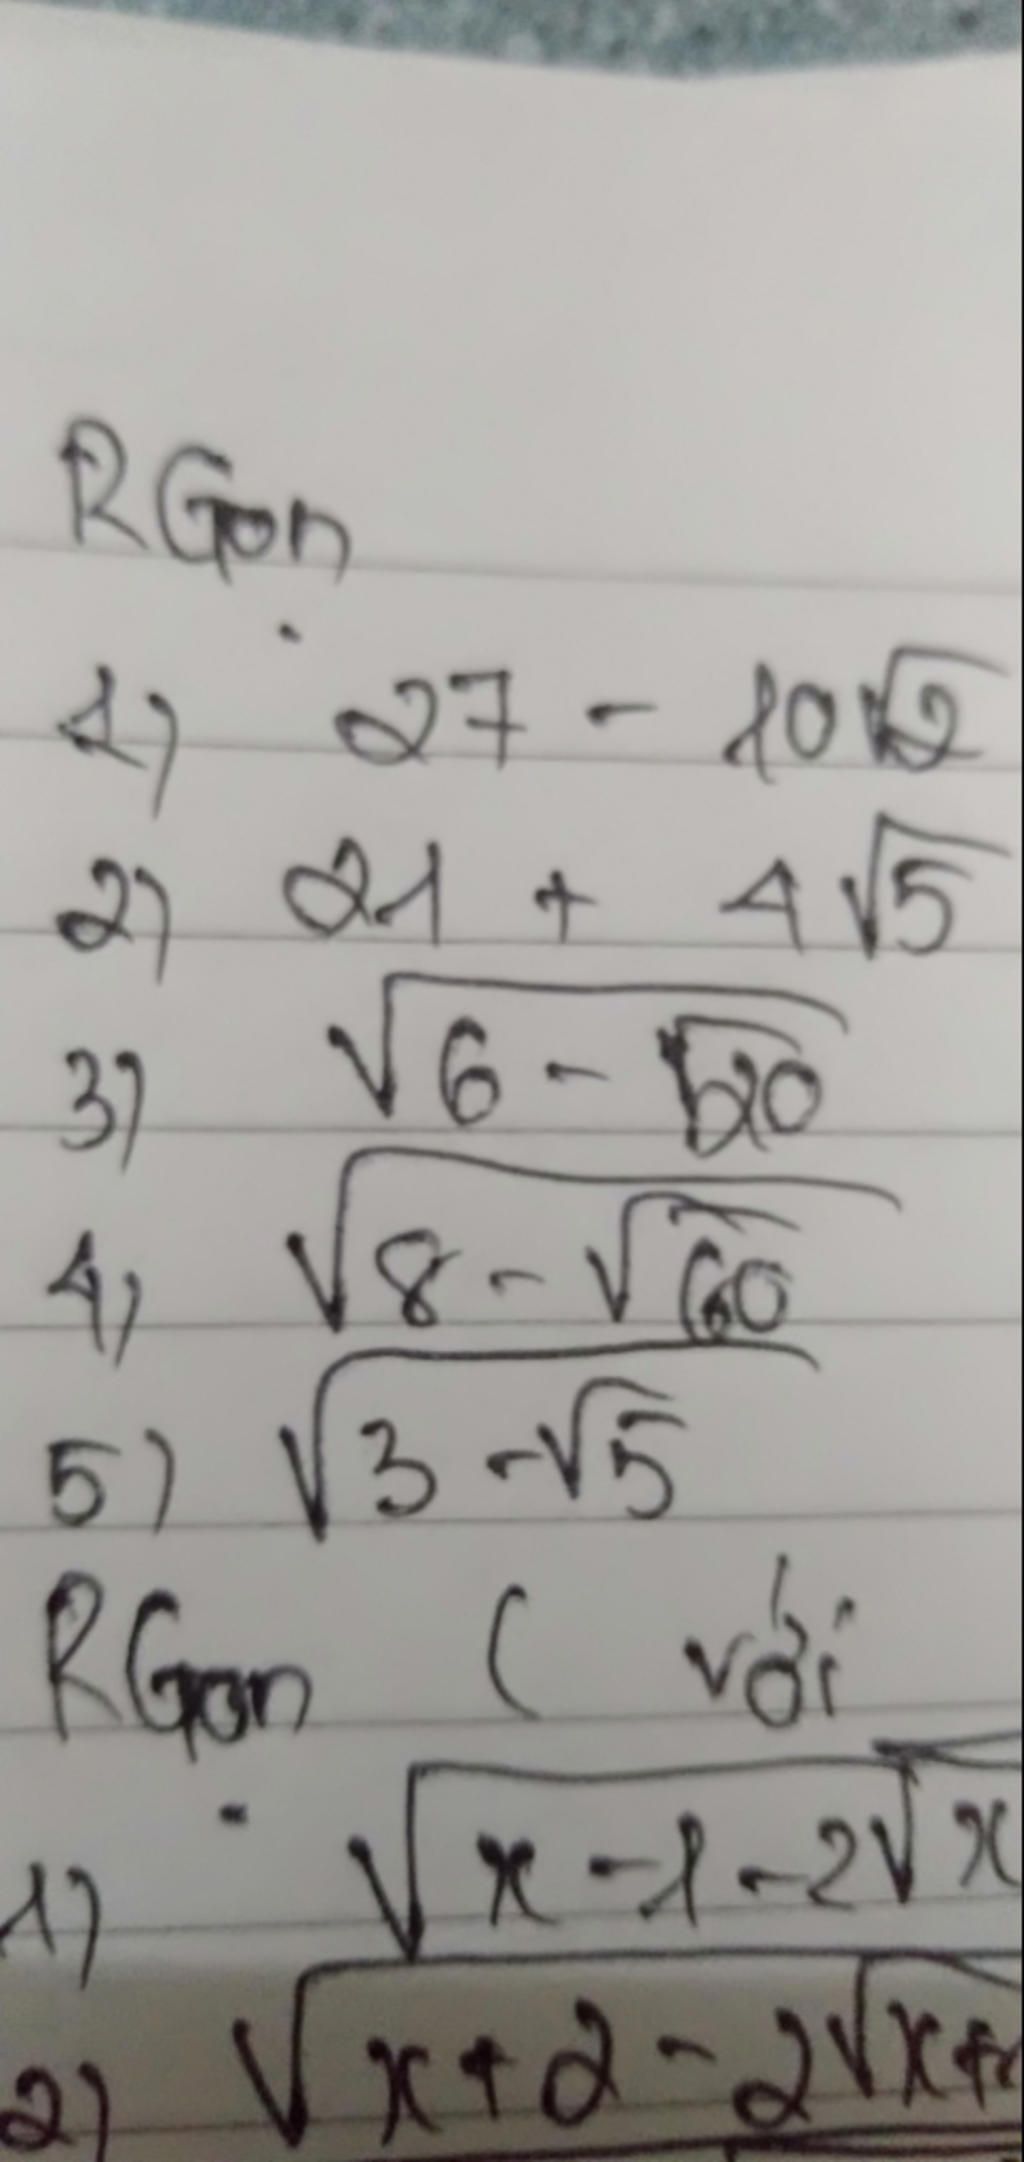 RGọn
1) 27 - 10√2
2) 21 + 4√5
3) √(6 - √20)
4) √(8 - √60)
5) √(3 - √5)
RGọn ( với
1) √(x - 1 - 2√x
2) √(x + 2 - 2√x+